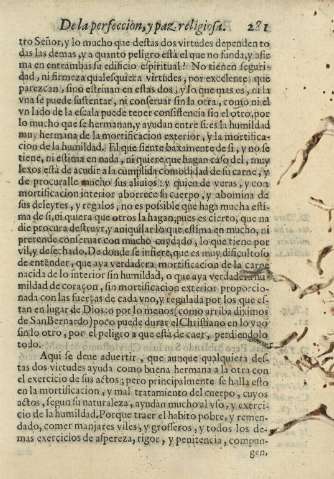 De la perfeccion, y paz religiosa. 281
tro Señor, y lo mucho que destas dos virtudes dependen to
das las demas, y a quanto peligro està el que no funda, y asie
ma en entrambas su edificio espiritual? No tienen seguri-
dad, ni firmeza qualesquiera virtudes, por excelentes que
parezcan, sino estriuan en estas dos, y lo que mas es, ni la
vna se puede sustentar, ni conseruar sin la otra, como ni el
vn lado de la escala puede tener consistencia sin el otro, por
lo mucho que se hermanan, y ayudan entre si: es la humildad
muy hermana de la mortificacion exterior, y la mortifica-
cion de la humildad. El que siente baxamente de si, y no se
tiene, ni estima en nada, ni quiere que hagan caso del, muy
lexos està de acudir a la cumplida comodidad de su carne, y
de procuralle mucho sus aliuios: y quien de veras, y con
mortificacion interior aborrece su cuerpo, y abomina de
sus deleytes, y regalos, no es possible que haga mucha esti-
ma de si, ni quiera que otros la hagan; pues es cierto, que na
die procura destruyr, y aniquilar lo que estima en mucho, ni
pretende conseruar con mucho cuydado, lo que tiene por
vil, y desechado. De donde se infiere, que es muy dificultoso
de entender, que aya verdadera mortificacion de la carne
nacida de lo interior sin humildad, o que aya verdadera hu-
mildad de coraçon, sin mortificacion exterior proporcio-
nada con las fuerças de cada vno, y regulada por los que es-
tan en lugar de Dios: o por lo menos (como arriba diximos
de San Bernardo) poco puede durar el Christiano en lo vno
sin lo otro, por el peligro a que està de caer, perdiendolo
todo.
Aqui se deue aduertir, que aunque qualquiera des-
tas dos virtudes ayuda como buena hermana a la otra con
el exercicio de sus actos; pero principalmente se halla esto
en la mortificacion, y mal tratamiento del cuerpo, cuyos
actos, segun su naturaleza, ayudan mucho al vso, y exerci-
cio de la humildad. Porque traer el habito pobre, y remen-
dado, comer manjares viles, y grosseros, y todos los de-
mas exercicios de aspereza, rigor, y penitencia, compun-
gen.